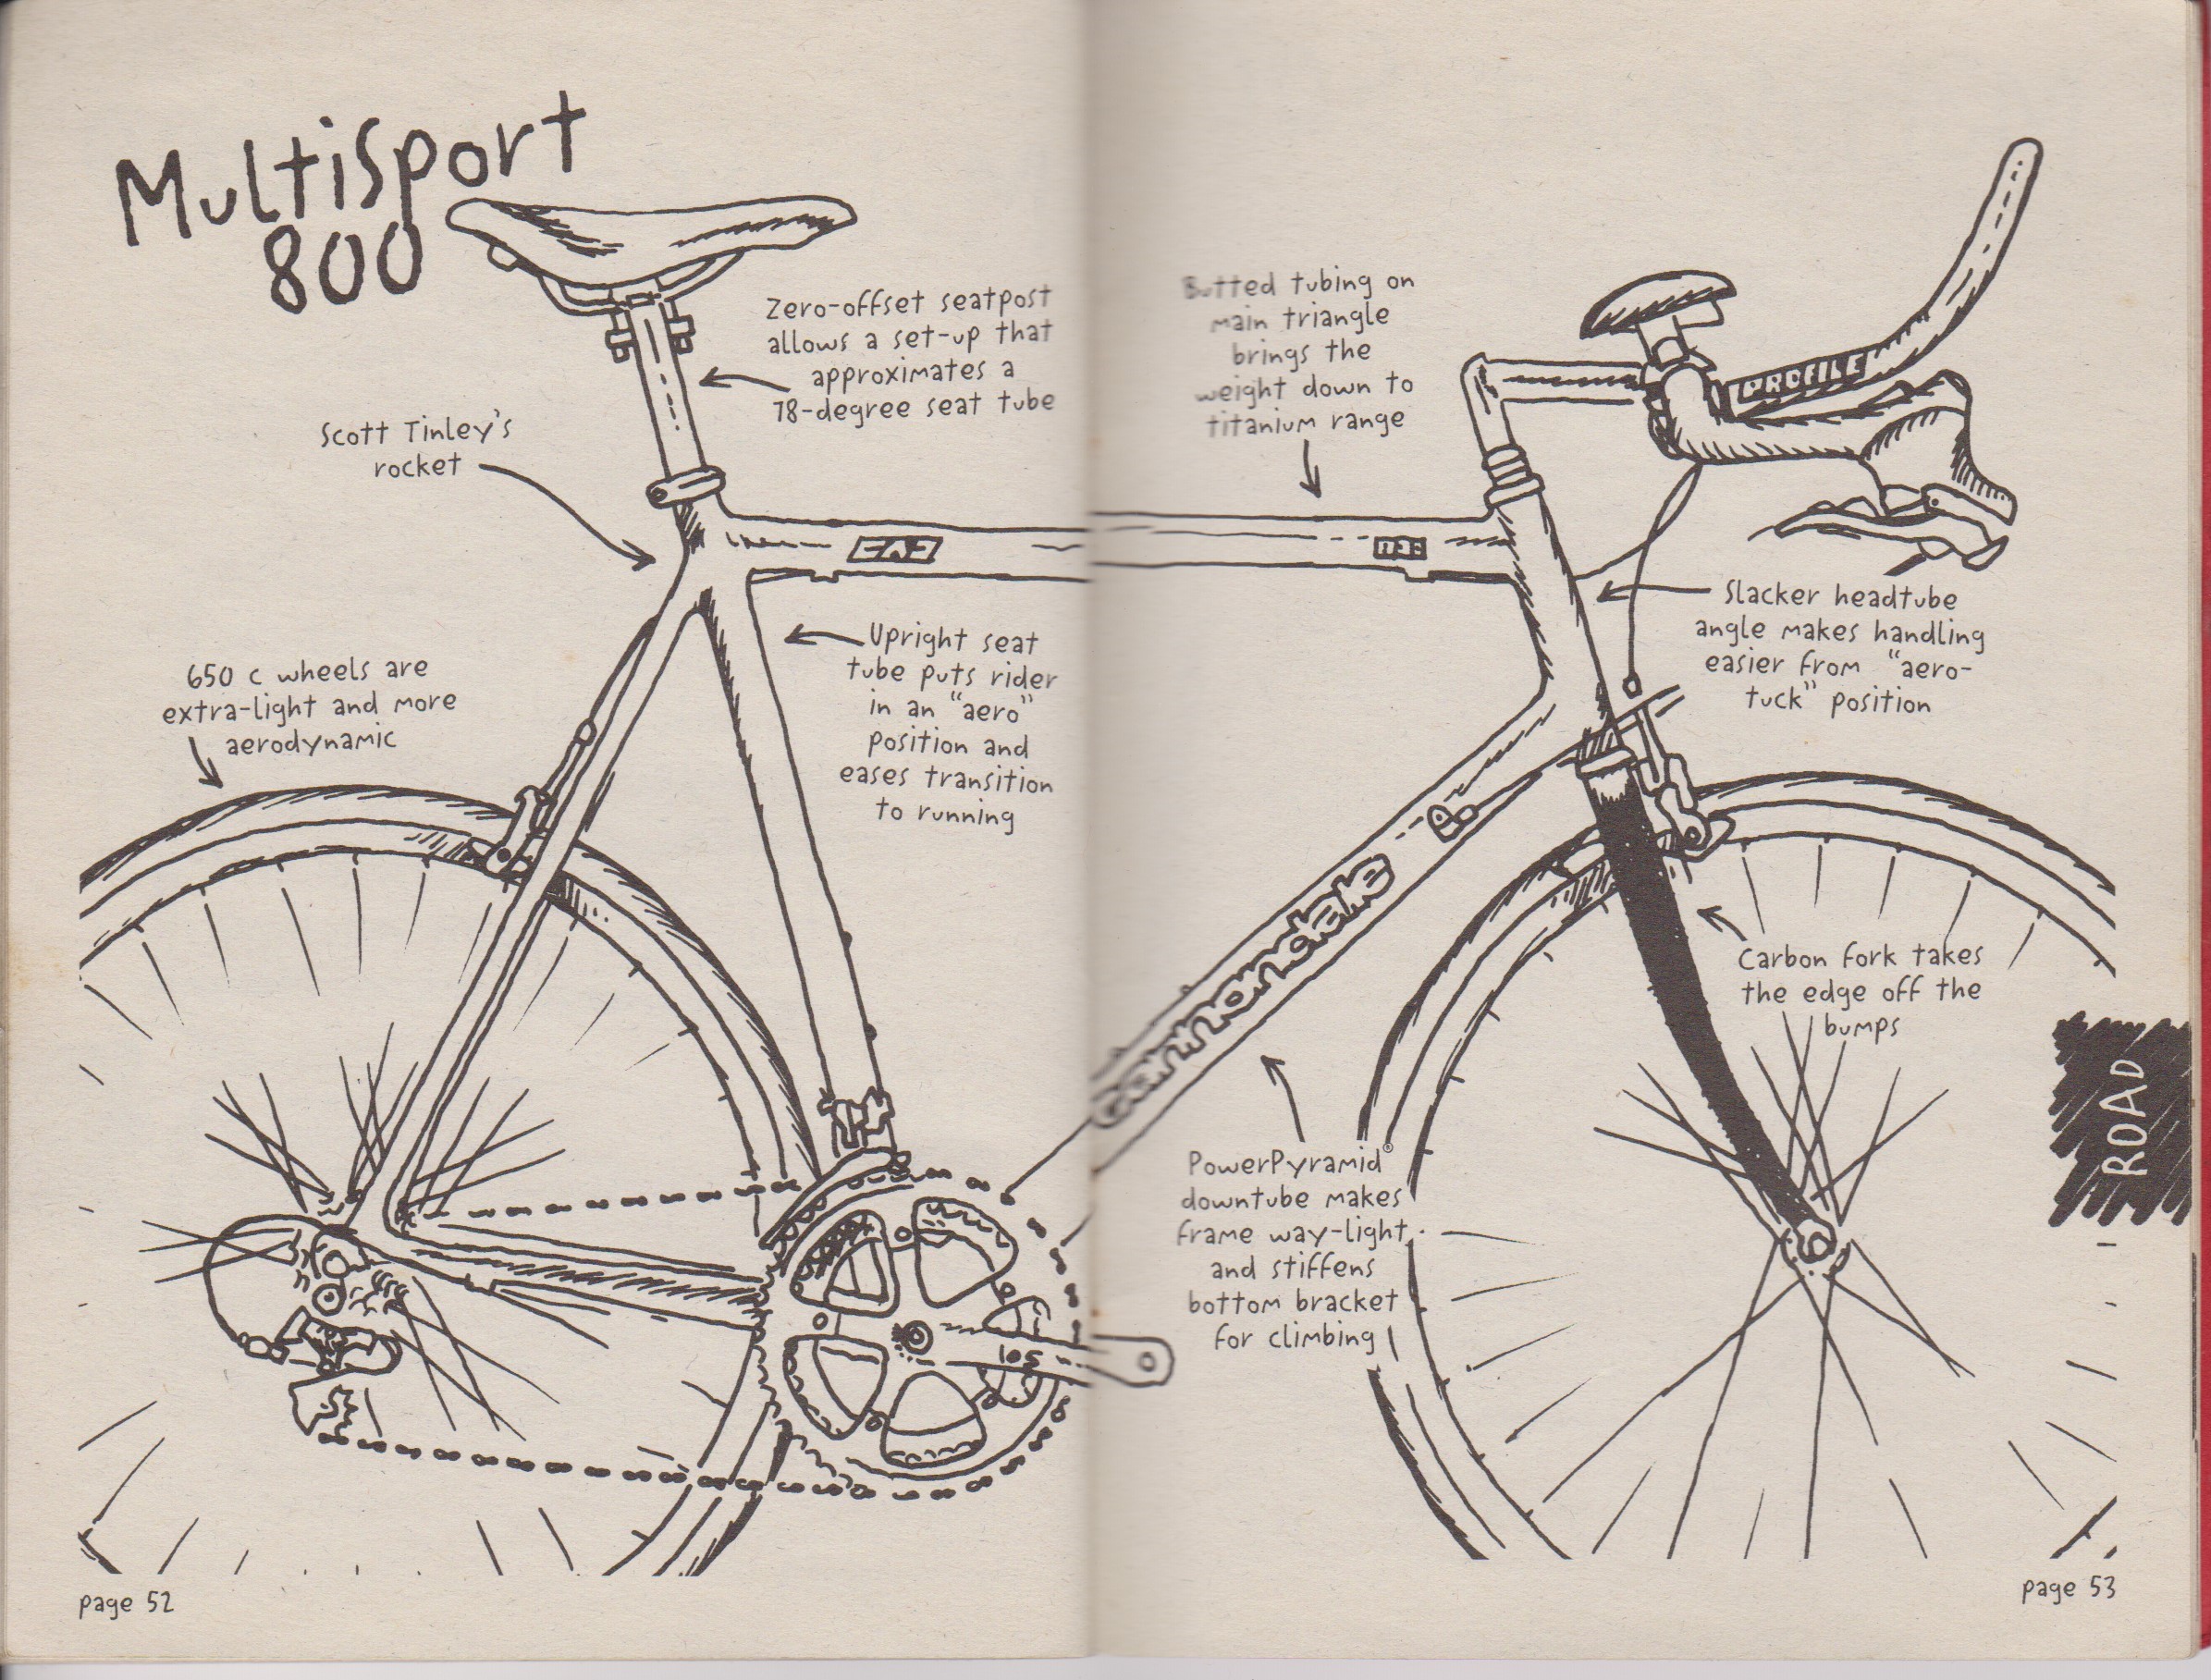 Multisport
800
Zero-offset seatpost
allows a set-up that
approximates a
78-degree seat tube
Scott Tinley's
rocket
650 c wheels are
extra-light and more
aerodynamic
Upright seat
tube puts rider
in an "aero"
position and
eases transition
to running
105
page 52
Butted tubing on
main triangle
brings the
weight down to
titanium range
PROFILE
Slacker headtube
angle makes handling
easier from "aero-
tuck" position
cannondale
Carbon fork takes
the edge off the
bumps
PowerPyramid®
downtube makes
frame way-light
and stiffens
bottom bracket
for climbing
ROAD
page 53